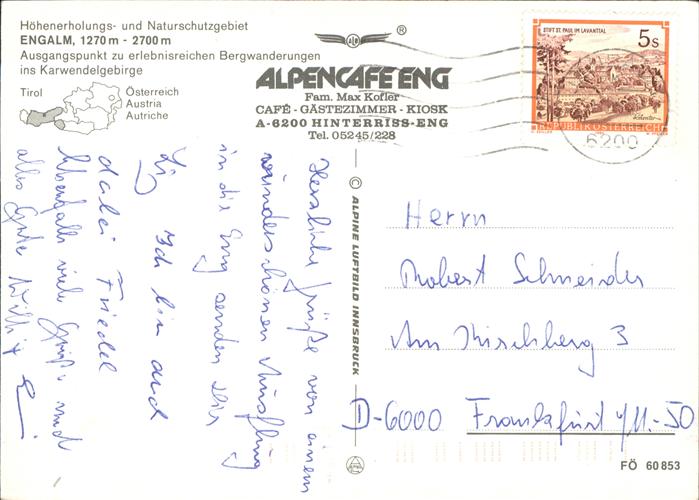 Höhenerholungs- und Naturschutzgebiet
ENGALM, 1270 m - 2700 m
Ausgangspunkt zu erlebnisreichen Bergwanderungen
ins Karwendelgebirge
Tirol
Österreich
Austria
Autriche
®
ALPENCAFE ENG
Fam. Max Kofler
CAFÉ - GÄSTEZIMMER - KIOSK
A-6200 HINTERRISS-ENG
Tel. 05245/228
STIFT ST. PAUL IM LAVANTTAL
5 S
REPUBLIK ÖSTERREICH
6200
Herzliche Grüße von einem
wunderschönen Ausflug
in die Eng senden Dir
Ich bin auch
dabei Friedel
Ebenfalls viele Grüße und
alles Gute Willi +
© ALPINE LUFTBILD INNSBRUCK
Herrn
Robert Schneider
Am Kirschberg 3
D-6000 Frankfurt/M.-50
FÖ 60853